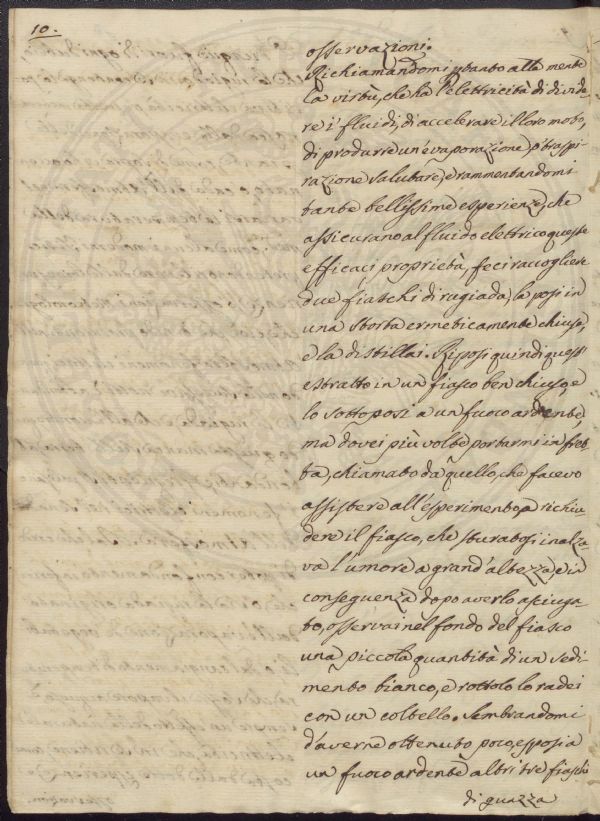 10.
osservazioni.
Richiamandomi pertanto alla mente
la virtù, che ha l'elettricità di divide=
re i fluidi, di accelerare il loro moto,
di produrre un'evaporazione, o traspi=
razione salutare, e rammentandomi
tante bellissime esperienze, che
assicurano al fluido elettrico queste
efficaci proprietà, feci raccogliere
due fiaschi di rugiada, la posi in
una storta ermeticamente chiusa,
e la distillai. Riposi quindi quest'
estratto in un fiasco ben chiuso, e
lo sottoposi a un fuoco ardente,
ma dovei più volte portarmi in fret=
ta, chiamato da quello, che facevo
assistere all'esperimento, a richiu=
dere il fiasco, che sturatosi inalza=
va l'umore a grand'altezza, e in
conseguenza dopo averlo asciuga=
to, osservai nel fondo del fiasco
una piccola quantità di un sedi=
mento bianco, e rottolo lo radei
con un coltello. Sembrandomi
d'averne ottenuto poco, esposi a
un fuoco ardente altri tre fiaschi
di guazza